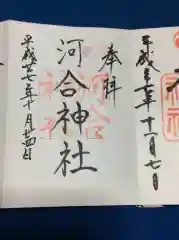 平成二十七年十一月七日
奉拝
河合神社
平成廿七年十月廿四日